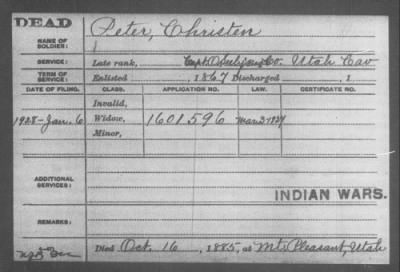 DEAD
NAME OF SOLDIER: Peter, Christen
SERVICE: Late rank, Capt. Co. Utah Cav
TERM OF SERVICE: Enlisted 1867 Discharged , 1
DATE OF FILING. CLASS. APPLICATION NO. LAW. CERTIFICATE NO.
Invalid,
1928-Jan. 6 Widow, 1601596 Mar 3 1927
Minor,
ADDITIONAL SERVICES:
INDIAN WARS.
REMARKS:
Died Oct. 16, 1885, at Mt. Pleasant, Utah